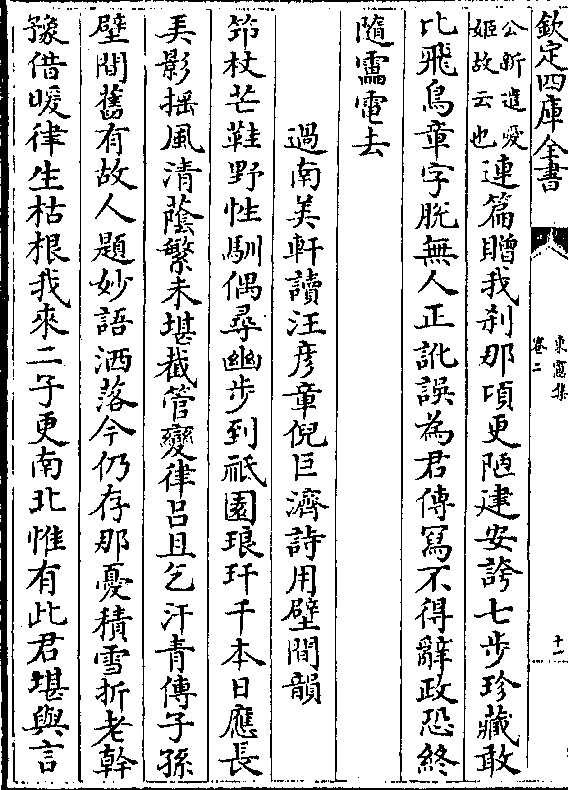 欽定四庫全書
東窻集
卷二
十一
公新遣愛
姬故云也
連篇贈我刹那頃更陋建安誇七步珍藏敢
比飛鳥章字脱無人正訛誤為君傳冩不得辭政恐終
隨靁電去
過南美軒讀汪彦章倪巨濟詩用壁間韻
笻杖芒鞵野性馴偶尋幽步到祇園琅玕千本日應長
美影揺風清蔭繁未堪截管變律吕且乞汗青傳子孫
壁間舊有故人題妙語洒落今仍存那憂積雪折老幹
豫借暖律生枯根我來二子更南北惟有此君堪與言